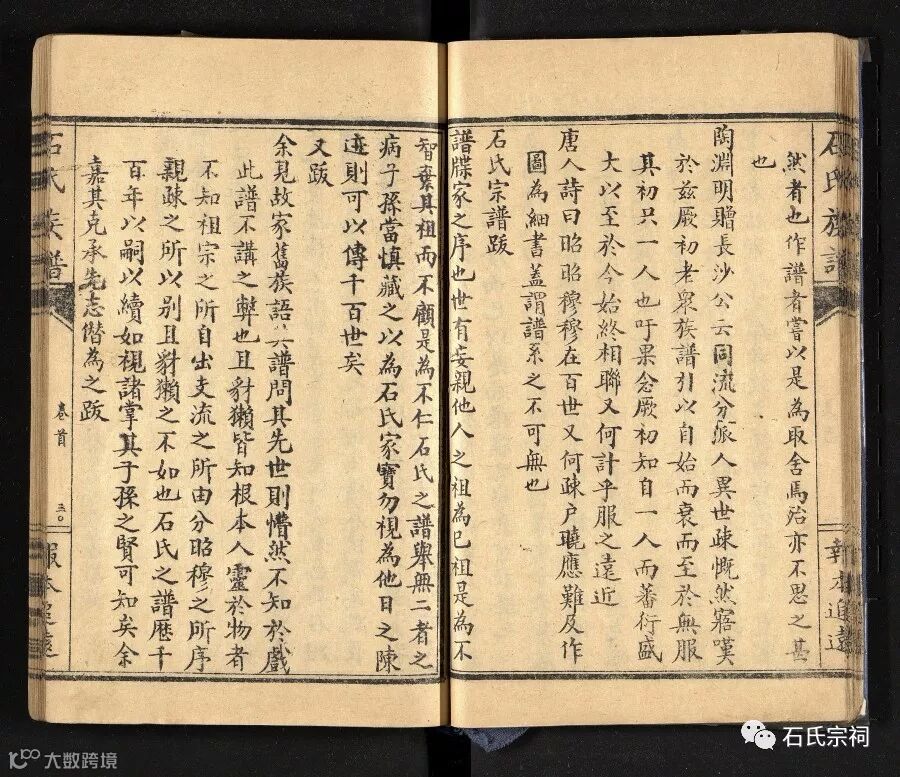 石氏族譜
報本追遠
然者也作譜者嘗以是為取舍焉殆亦不思之甚
也
陶淵明贈長沙公云同流分派人異世疎慨然寤嘆
於兹厥初老衆族譜引以自始而衰而至於無服
其初只一人也吁果念厥初知自一人而蕃衍盛
大以至於今始終相聯又何計乎服之遠近
唐人詩曰昭昭穆穆在百世又何疎户曉應難及作
圖為細書蓋謂譜系之不可無也
石氏宗譜跋
譜牒家之序也世有妄親他人之祖為已祖是為不
智棄其祖而不顧是為不仁石氏之譜舉無二者之
病子孫當慎藏之以為石氏家寶勿視為他日之陳
迹則可以傳千百世矣
又跋
余見故家舊族語其譜問其先世則懵然不知於戲
此譜不講之弊也且豺獺皆知根本人靈於物者
不知祖宗之所自出支流之所由分昭穆之所序
親疎之所以别且豺獺之不如也石氏之譜歷千
百年以嗣以續如視諸掌其子孫之賢可知矣余
嘉其克承先志偕為之跋
石氏族譜
卷首
三〇
報本追遠
石氏宗祠
大数跨境